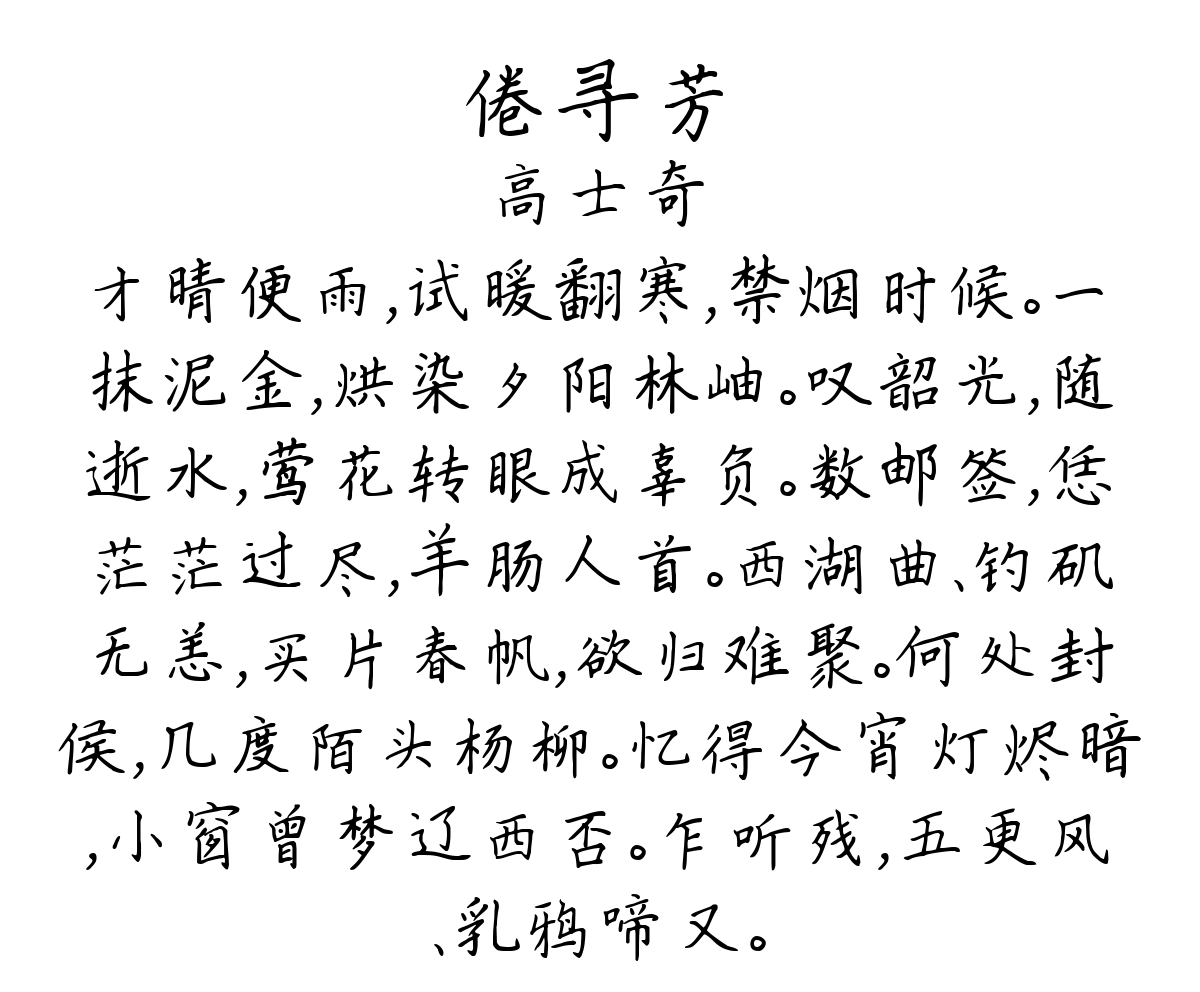 倦寻芳
高士奇
才晴便雨,试暖翻寒,禁烟时候。一
抹泥金,烘染夕阳林岫。叹韶光,随
逝水,莺花转眼成辜负。数邮签,恁
茫茫过尽,羊肠人首。西湖曲、钓矶
无恙,买片春帆,欲归难聚。何处封
侯,几度陌头杨柳。忆得今宵灯烬暗
,小窗曾梦辽西否。乍听残,五更风
、乳鸦啼又。